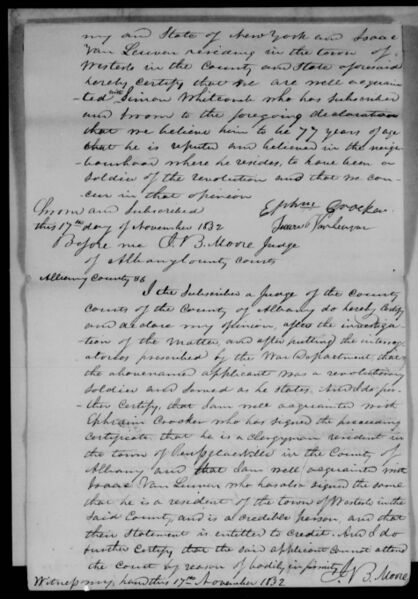 my and State of New York and Isaac
Van Leuven residing in the town of
Westerlo in the County and State aforesaid
hereby certify that we are well acquain
-ted with Simon Whitcomb who has subscribed
and sworn to the foregoing declaration
that we believe him to be 77 years of age
that he is reputed and believed in the neigh
-bourhood where he resides, to have been a
Soldier of the revolution and that we con
-cur in that opinion
Sworn and Subscribed
this 17th day of November 1832
Ephm Crocker
Isaac Van Leuven
Before me J. B. Moore Judge
of Albany County Courts
Albany County SS
I the Subscriber a Judge of the County
Courts of the County of Albany do hereby Certify
and declare my opinion, after the investiga
-tion of the Matter, and after putting the interrog
-atories prescribed by the War Department, that
the abovenamed applicant was a revolutionary
Soldier and Served as he States. And I do fur
-ther Certify, that I am well acquainted with
Ephraim Crocker who has signed the preceeding
Certificate that he is a Clergyman resident in
the town of Rensselaerville in the County of
Albany and that I am well acquainted with
Isaac Van Leuven who has also signed the same
that he is a resident of the town of Westerlo in the
Said County, and is a credible person, and that
their Statement is entitled to credit. And I do
further Certify that the said applicant cannot attend
the Court by reason of bodily infirmity
Witness my hand this 17th November 1832 J. B. Moore